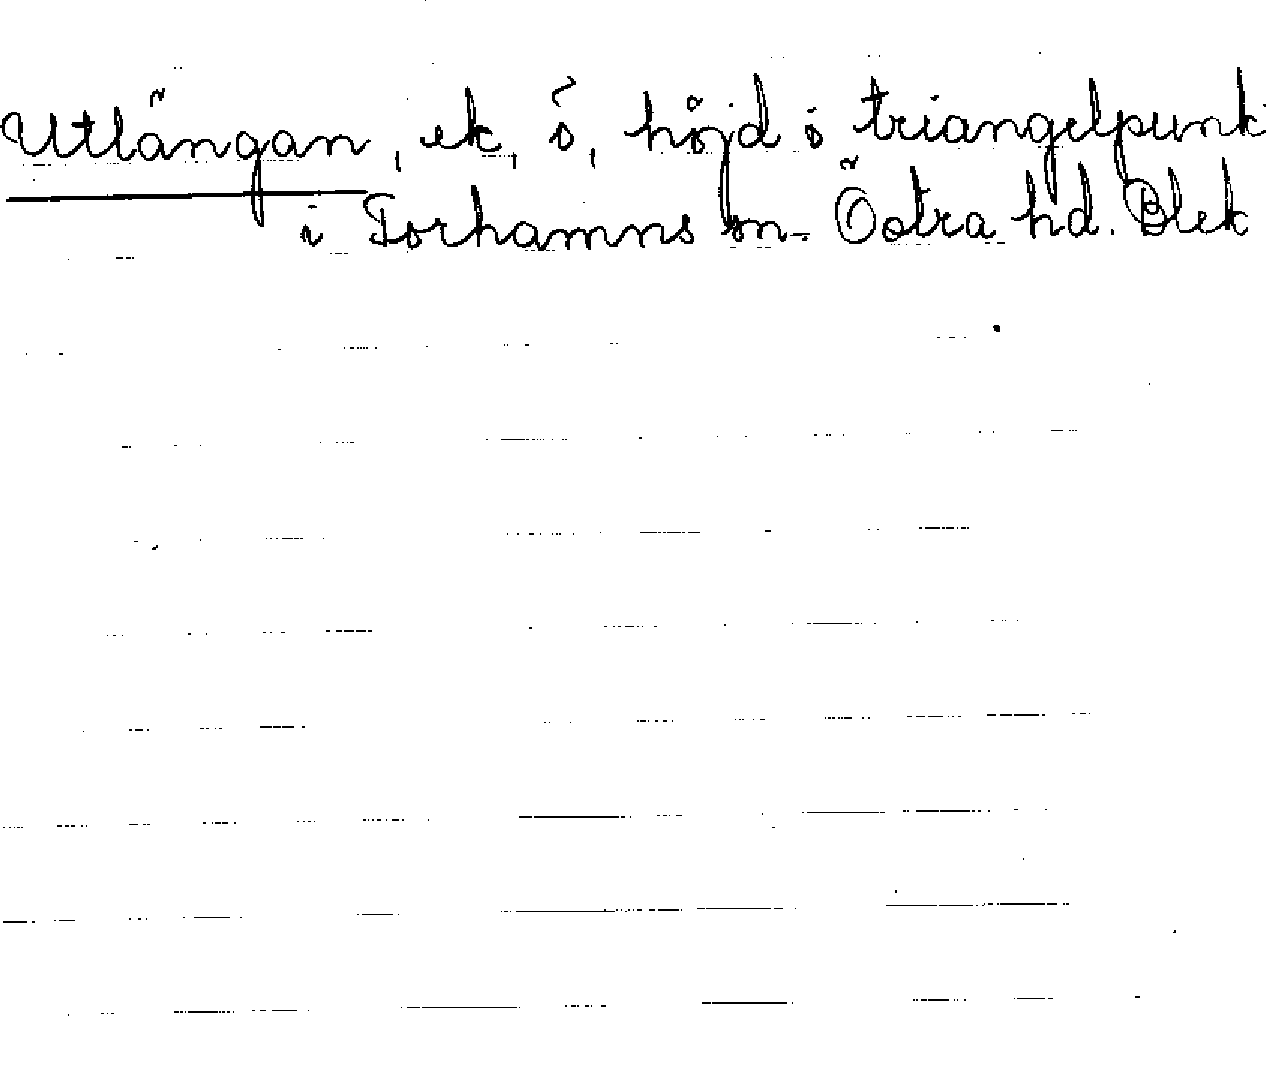 Utlängan, ek, ö, höjd ö triangelpunk
i Torhamns sn. Östra hd. Blek